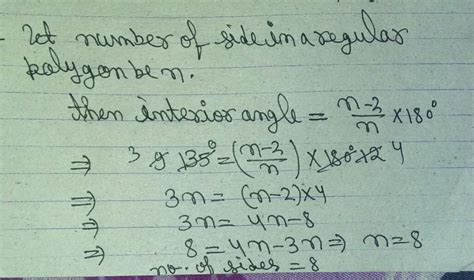 Let number of side in a regular
polygon be n.
then interior angle = n-2/n × 180°
⇒ 3 9 135° = (n-2/n) × 180° 12 4
⇒ 3n = (n-2) × 4
⇒ 3n = 4n - 8
⇒ 8 = 4n - 3n ⇒ n = 8
no. of sides = 8